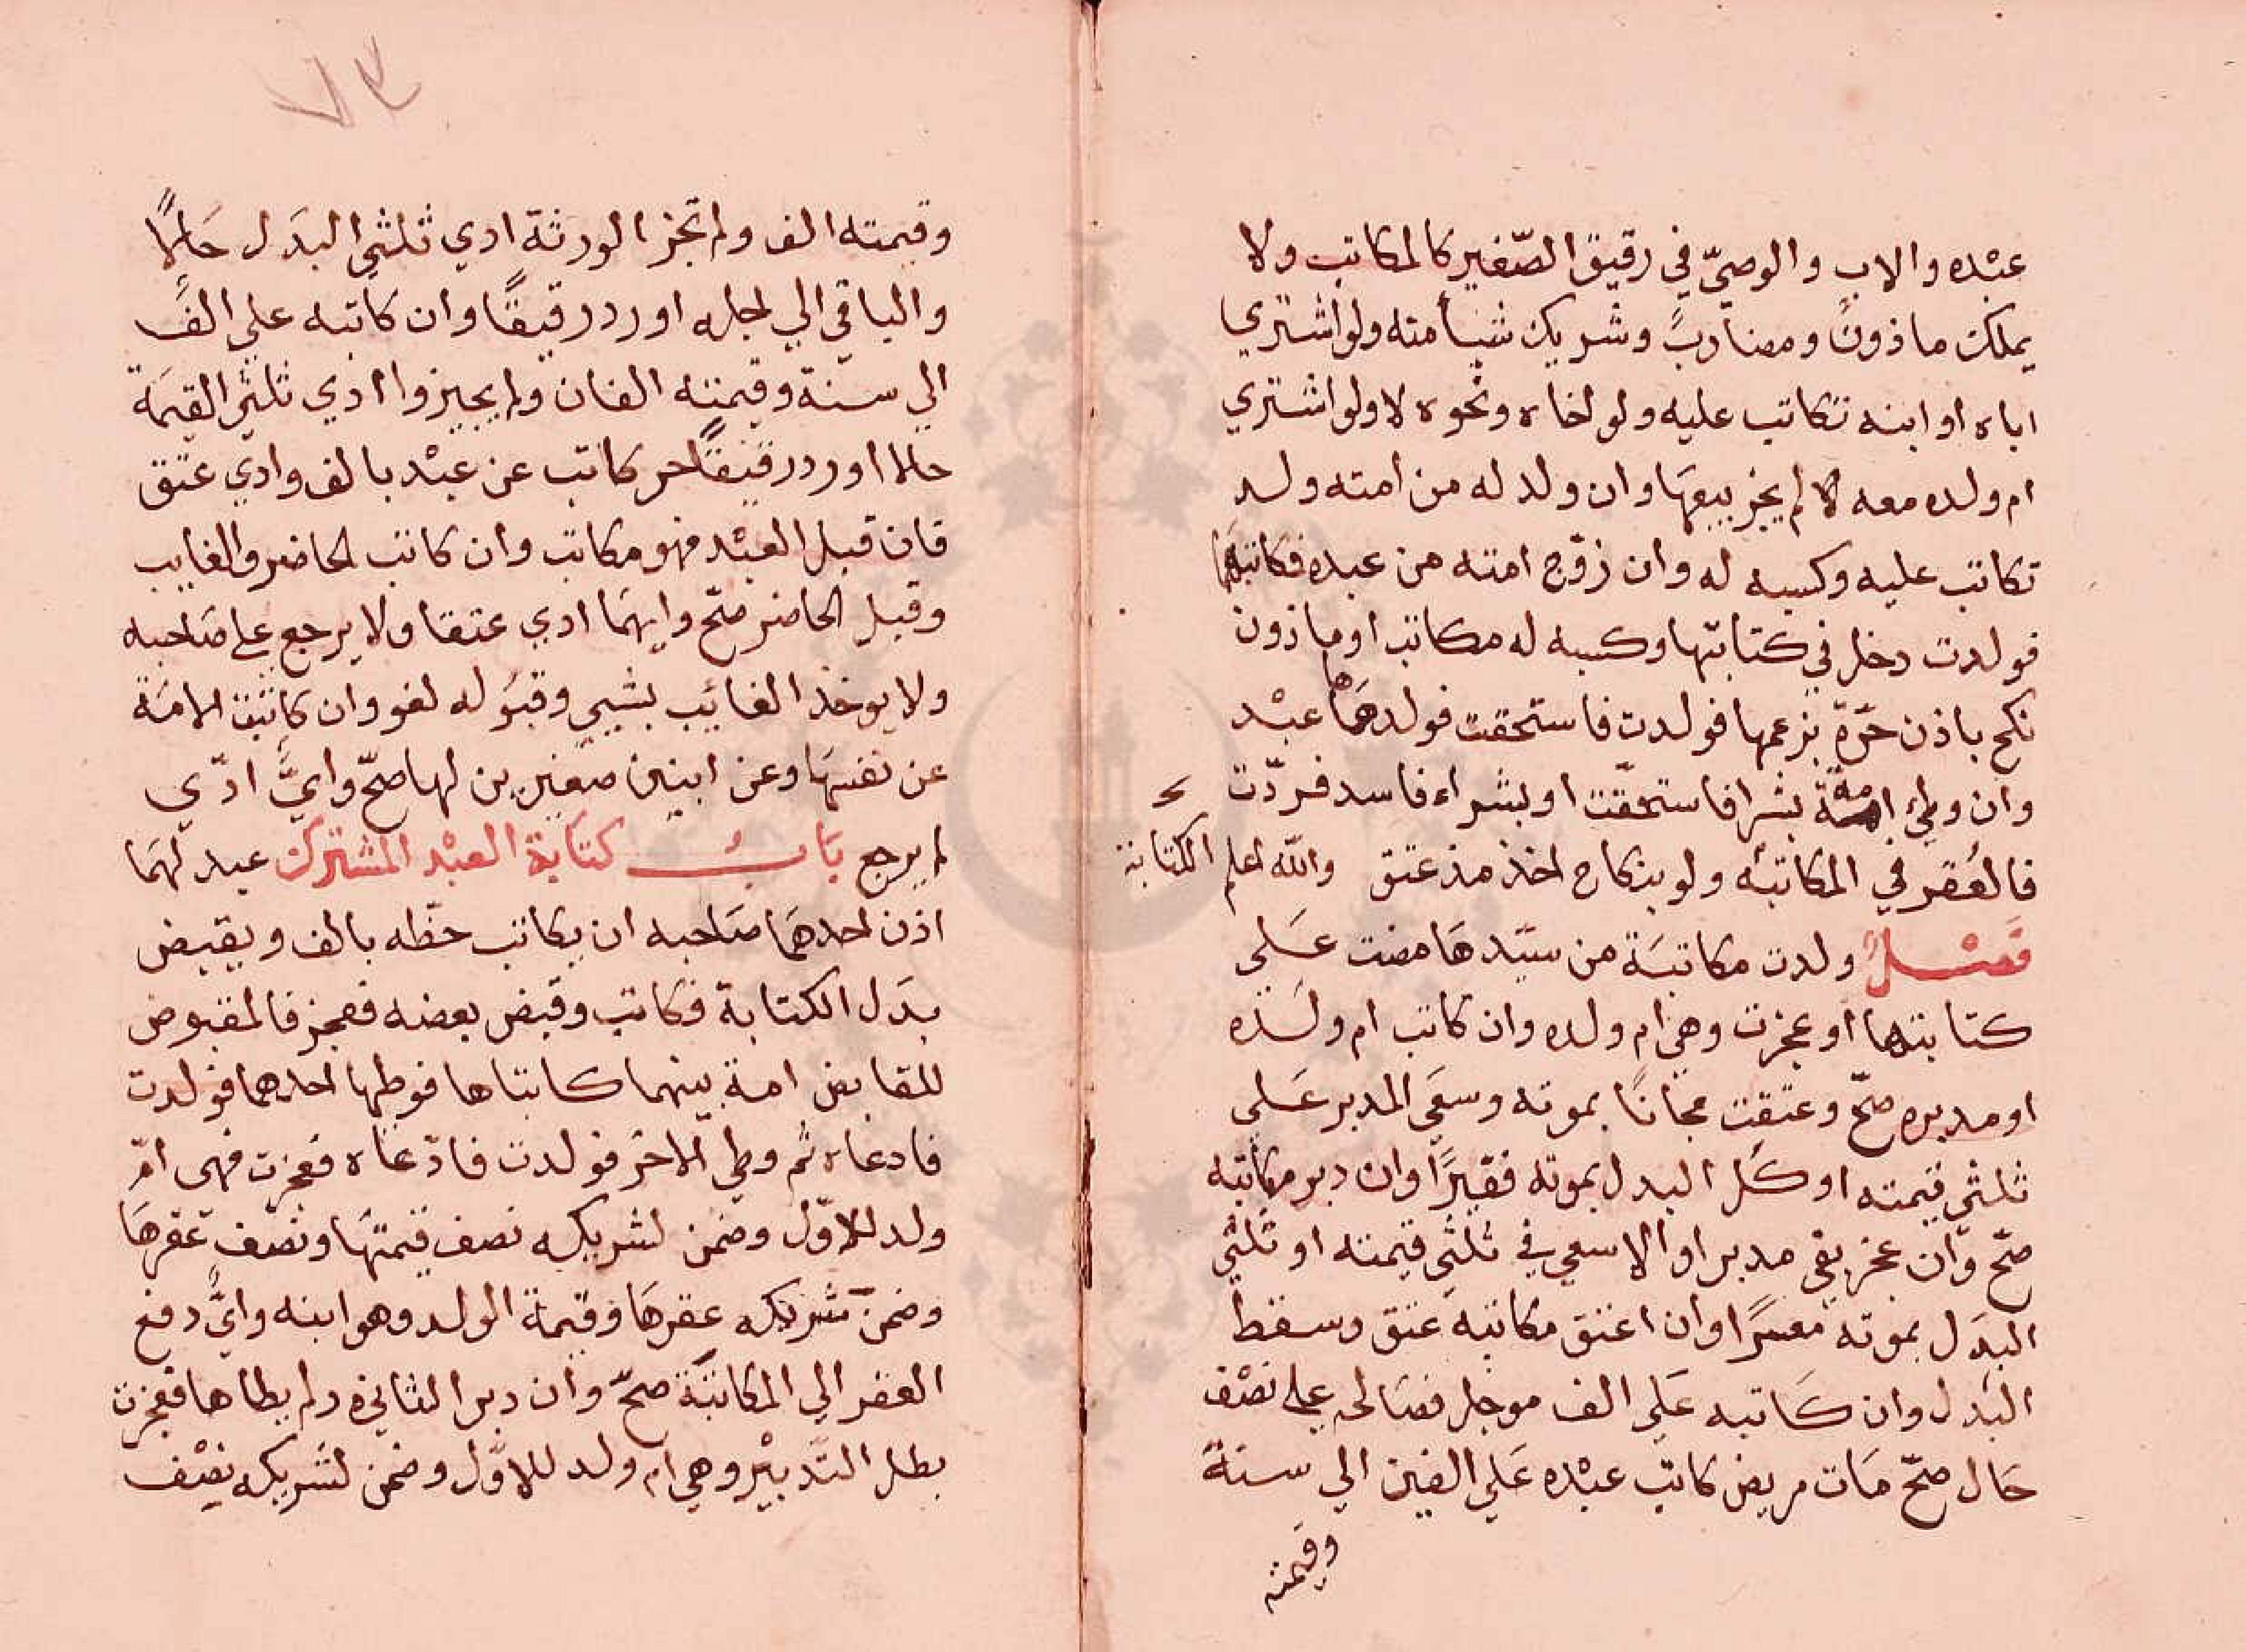 عبْده والاب والوصيّ في رقيق الصّغير كالمكاتب ولا
يملك ماذونً ومضاربً وشريك شيأ منه ولو اشتري
اباه او ابنه تكاتب عليه ولو اخاه ونحوه لا ولو اشتري
ام ولده معه لا لم يجز بيعهَا وان ولد له من امته ولد
تكاتب عليه وكسبه له وان زوّج امته من عبده فكاتبهما
فولدت دخل في كتابتها وكسبه لها مكاتب او ماذون
نكح باذن حَرّة بزعمها فولدت فاستحقت فولدهَا عبْد
وان وطئ امة بشرا فاستحقّت او بشراء فاسد فردّت
فالعُقر في المكاتبه ولو بنكاح اخذ مذ عتق والله اعلم الكتابة
فصْـــل ولدت مكاتبَة من سيّدهَا مضت عَلي
كتابتها او عجزت وهي ام ولده وان كاتب ام ولَده
او مدبره صحّ وعتقت مجانًا بموته وسعَي المدبر عَلى
ثلثي قيمته او كل البدل بموته فقيرًا وان دبر مكاتبه
صحّ وان عجز بقي مدبرا والا سعي في ثلثي قيمته او ثلثي
البدَل بموته معسرًا وان اعتق مكاتبه عتق وسقط
البدَل وان كَاتبه عَلي الف موجل فصَالحه علي نصْف
حَال صحّ مَات مريض كاتب عبْده عَلي الفين الي سنة
وقيمته
٧٣
وقيمته الف ولم تجز الورثة ادي ثلثي البدَل حَالاً
والباقي الي اجله او رد رقيقًا وان كاتبه علي الفً
الي سنة وقيمته الفان ولم يجيزوا ادي ثلثي القيمَة
حالا او رد رقيقًا حر كاتب عن عبْد بالف وادي عتق
فان قبل العبْد فهو مكاتب وان كاتب الحاضر والغايب
وقبل الحاضر صحّ وايهمَا ادي عتقا ولا يرجع علي صَاحبه
ولا يوخذ الغائب بشيي وقبوُله لغو وان كاتبت الامَة
عن نفسهَا وعن ابنين صغيرين لها صحّ وايًّ ادّي
لم يرجع بَابُ كتَابة العبْد المشترك عبد لهمَا
اذن احدهمَا صَاحبه ان يكاتب حظّه بالف ويقبض
بدَل الكتابة فكاتب وقبض بعضه فعجز فالمقبوض
للقابض امة بينهما كاتباها فوطيها احدهما فولدت
فادعاه ثم وطي الاخر فولدت فادّعاه فعجزت فهى امّ
ولد للاوّل وضمن لشريكه نصف قيمتهَا ونصْف عقرهَا
وضمن شريكه عقرهَا وقيمة الولد وهو ابنه وايًّ دفع
العقر الي المكاتبَة صحّ وان دبر الثاني ولم يطاها فعجزت
بطل التدبيْر وهي ام ولد للاوّل وضمن لشريكه نصْف